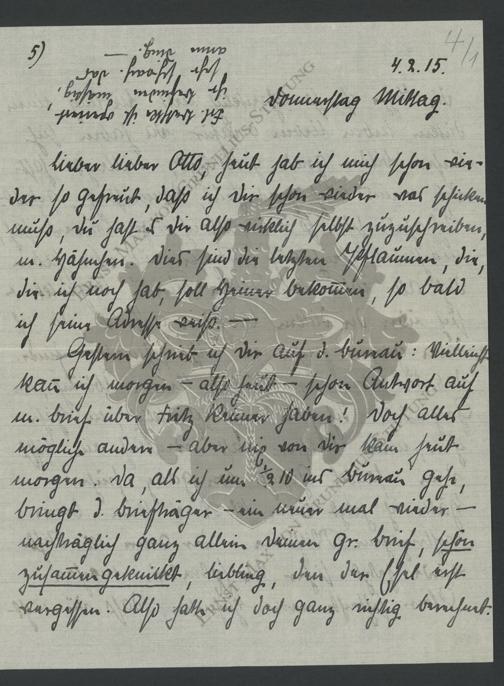 5)
4/1
4.2.15.
Donnerstag Mittag.
lieber lieber Otto, heut hab ich mich schon wie-
der so gefreut, daß ich dir schon wieder was schicken
muß, du hast es dir also wirklich selbst zuzuschreiben,
m. Hähnchen. Dies sind die letzten Pflaumen, die,
die ich noch hab, soll Heiner bekommen, so bald
ich seine Adresse weiß. —
Gestern schrieb ich dir auf d. bureau: Vielleicht
kann ich morgen – also heut – schon Antwort auf
m. brief über Fritz Reiner haben! Doch alles
mögliche andere – aber nix von dir kam heut
morgen. Da, als ich um ½ 10 ins bureau gehe,
bringt d. briefträger – ein neuer mal wieder –
nachträglich ganz allein deinen gr. brief, schön
zusammengeknickt, liebling, den der Esel erst
vergessen. Also hatte ich doch ganz richtig berechnet.